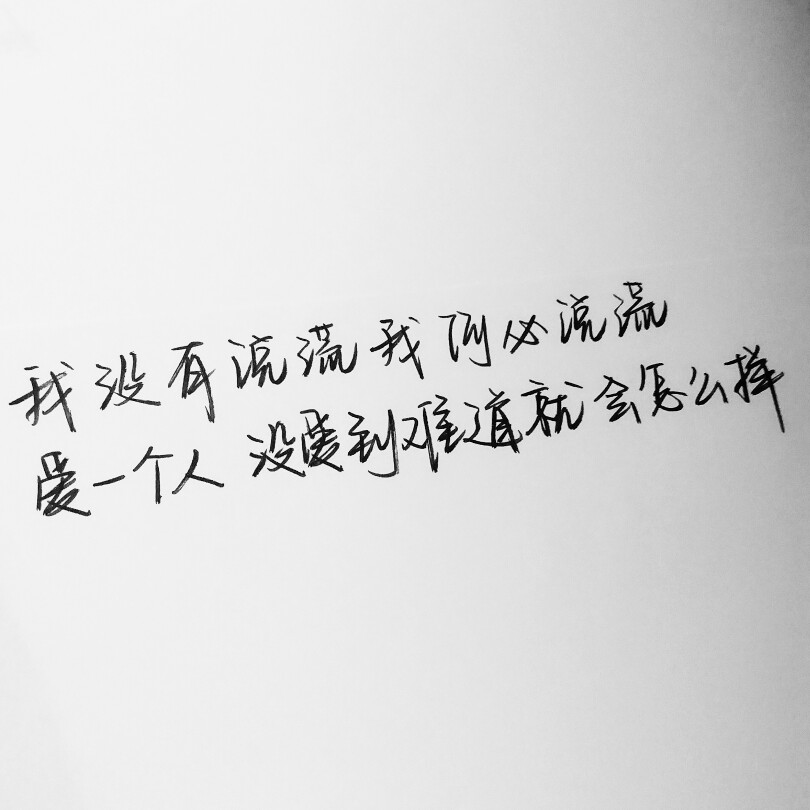 我没有流谎我何必流谎
爱一个人 没爱到难道就会怎么样